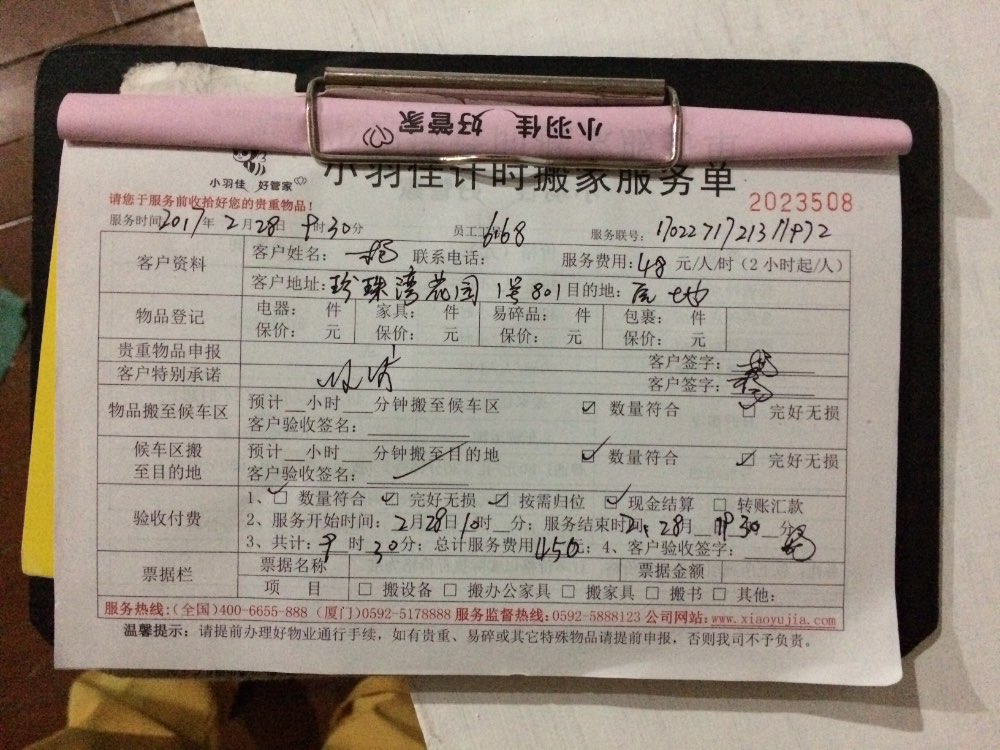 小羽佳 好管家
小羽佳 好管家
小羽佳计时搬家服务单
2023508
请您于服务前收拾好您的贵重物品!
服务时间2017年2月28日9时30分 员工工号 6668 服务联号:
客户资料 客户姓名: 联系电话: 服务费用:48元/人/时(2小时起/人)
客户地址:珍珠湾花园1号801目的地:
物品登记 电器: 件 家具: 件 易碎品: 件 包裹: 件
保价: 元 保价: 元 保价: 元 保价: 元
贵重物品申报 客户签字:
客户特别承诺 客户签字:
物品搬至候车区 预计__小时___分钟搬至候车区 ☑ 数量符合 完好无损
客户验收签名:
候车区搬至目的地 预计__小时___分钟搬至目的地 ☑ 数量符合 ☑ 完好无损
客户验收签名:
验收付费 1、☑ 数量符合 ☑ 完好无损 ☑ 按需归位 ☑ 现金结算 □ 转账汇款
2、服务开始时间:2月28日10时__分;服务结束时间:28 30分
3、共计:9时30分;总计服务费用1450元;4、客户验收签字:
票据栏 票据名称 票据金额
项 目 □ 搬设备 □ 搬办公家具 □ 搬家具 □ 搬书 □ 其他:
服务热线:(全国)400-6655-888 (厦门)0592-5178888 服务监督热线:0592-5888123 公司网站:www.xiaoyujia.com
温馨提示:请提前办理好物业通行手续,如有贵重、易碎或其它特殊物品请提前申报,否则我司不予负责。